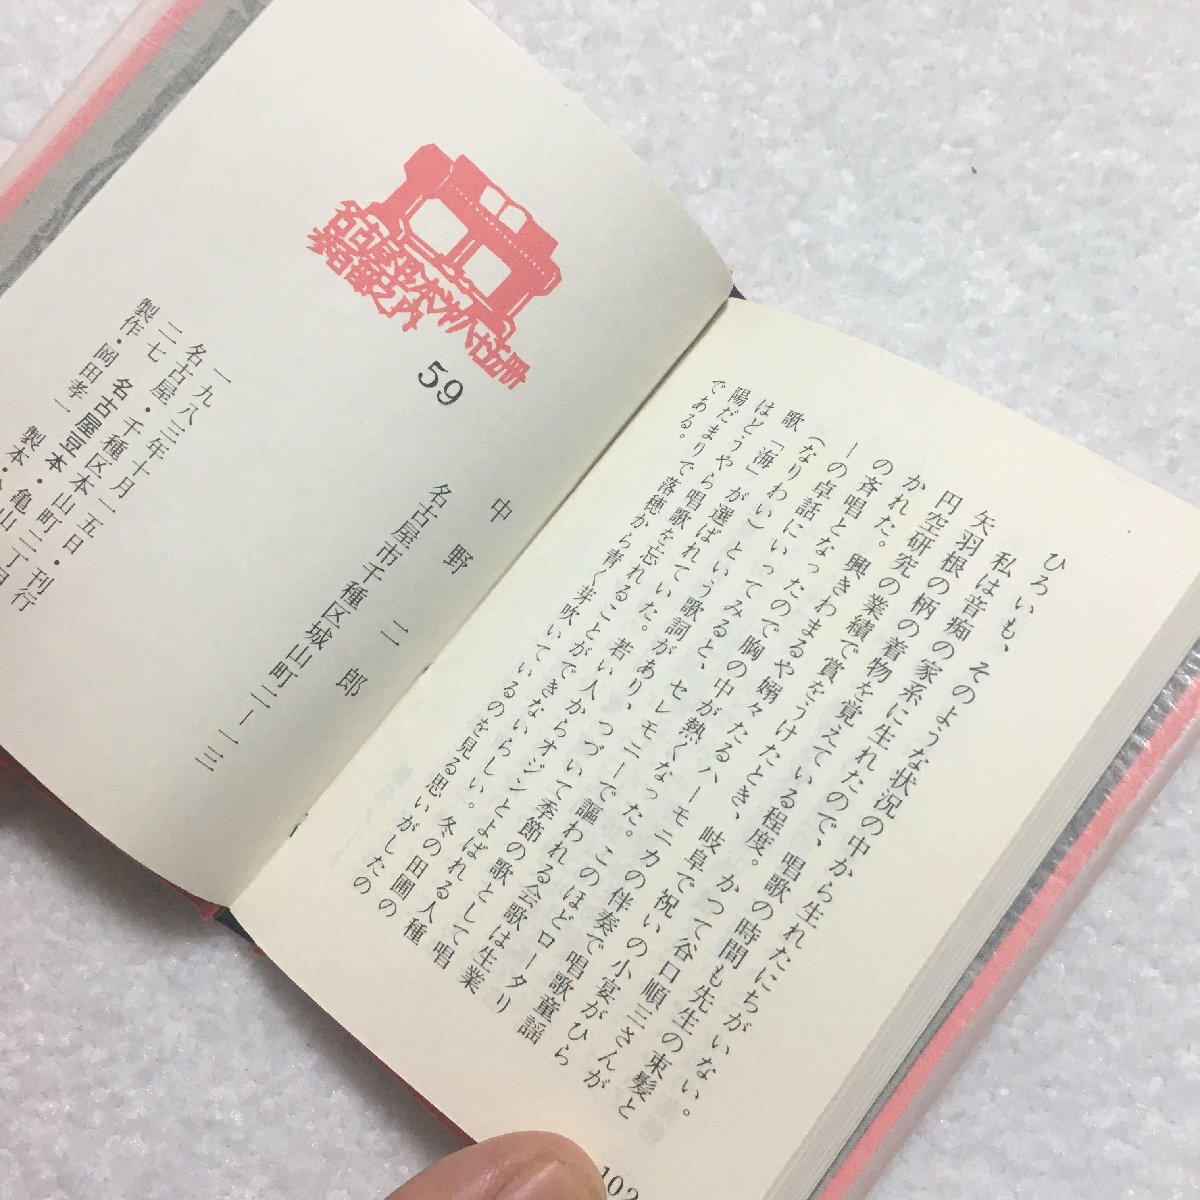 ひろいも、そのような状況の中から生れたにちがいない。
私は音痴の家系に生れたので、唱歌の時間も先生の束髪と
矢羽根の柄の着物を覚えている程度。かつて谷口順三さんが
円空研究の業績で賞をうけたとき、岐阜で祝いの小宴がひら
かれた。興きわまるや嫋々たるハーモニカの伴奏で唱歌童謡
の斉唱となったので胸の中が熱くなった。このほどロータリ
ーの卓話にいってみると、セレモニーで謳われる会歌は生業
(なりわい)という歌詞があり、つづいて季節の歌として唱
歌「海」が選ばれていた。若い人からオジンとよばれる人種
はどうやら唱歌を忘れることができないらしい。冬の田圃の
陽だまりで落穂から青く芽吹いているのを見る思いがしたの
である。
102
59
中野二郎
名古屋市千種区城山町二ー一三
一九八三年十月一五日・刊行
名古屋・千種区本山町二丁目
二七 名古屋豆本・亀山
製作・岡田孝一 製本・